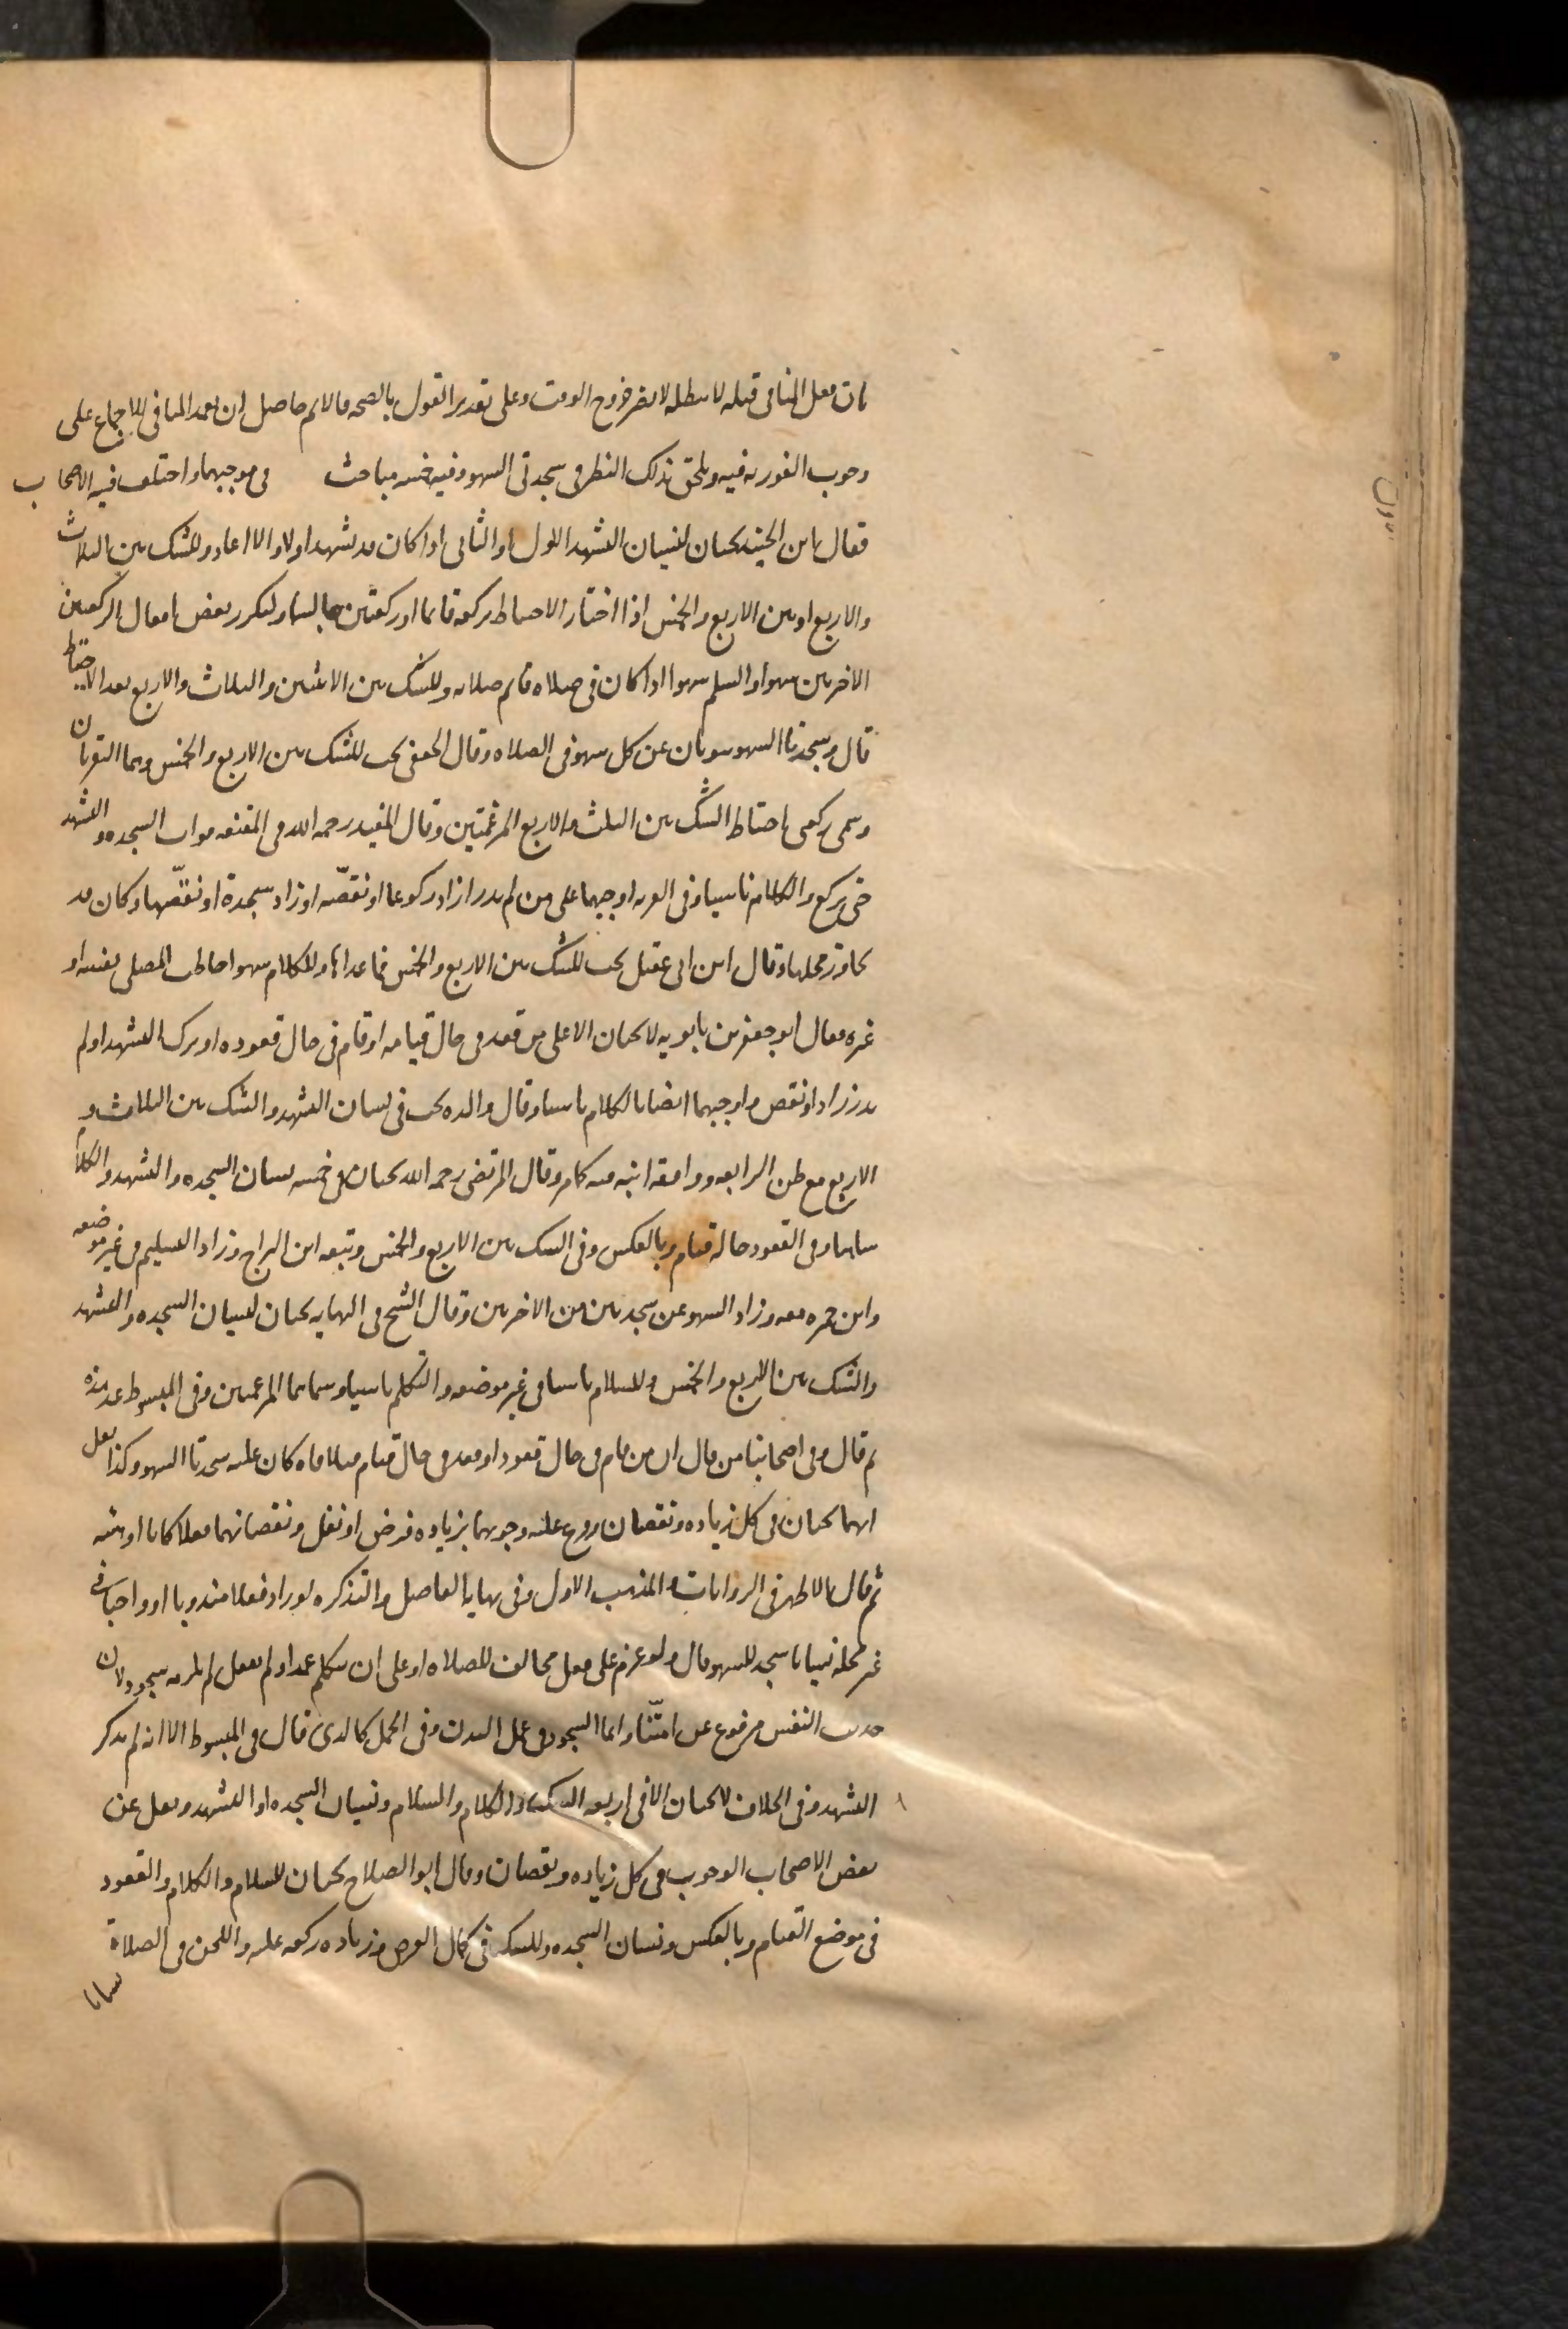 بان فعل المنافي قبله لا يبطله لا يضر خروج الوقت وعلى تقدير القول بالصحه فالاثم حاصل ان تعمد المنافي للاجماع على
وجوب الفوريه فيه ويلحق بذلك النظر في سجدتي السهو وفيه خمسه مباحث في موجبهما واختلف فيه الاصحاب
فقال ابن الجنيد يجبان لنسيان التشهد الاول او الثاني اذا كان قد تشهد اولا والا اعاد وللشك بين الثلاث
والاربع او بين الاربع والخمس اذا اختار الاحتياط بركعه قائما او ركعتين جالسا ولتكرر بعض افعال الركعتين
الاخريين سهوا والتسليم سهوا اذا كان في صلاه فاتم صلاته وللشك بين الاثنين والثلاث والاربع بعد الاحتياط
قال وسجدتا السهو تنوبان عن كل سهو في الصلاه وقال الجعفي يجب للشك بين الاربع والخمس وهما النقرتان
وسمى ركعتي احتياط الشك بين الثلث والاربع المرغمتين وقال المفيد رحمه الله في المقنعه موات السجده والتشهد
حتى يركع والكلام ناسيا وفي الغريه اوجبهما على من لم يدر ازاد ركوعا او نقصه او زاد سجدة او نقصها وكان قد
تجاوز محلها وقال ابن ابي عقيل يجب للشك بين الاربع والخمس فما عداها وللكلام سهوا خاطب المصلي نفسه او
غيره وقال ابو جعفر بن بابويه لا يجبان الا على من قعد في حال قيامه او قام في حال قعوده او ترك التشهد او لم
يدر زاد او نقص واوجبهما ايضا بالكلام ناسيا وقال والده يجب في نسيان التشهد والشك بين الثلاث و
الاربع مع ظن الرابعه ووافقه ابنه فيه كامر وقال المرتضى رحمه الله يجبان في خمسه نسيان السجده والتشهد والكلام
ساهيا وفي القعود حاله قيام وبالعكس وفي الشك بين الاربع والخمس وتبعه ابن البراج وزاد التسليم في غير موضعه
وابن حمزه معه وزاد السهو عن سجدتين من الاخرتين وقال الشيخ في النهايه يجبان لنسيان السجده والتشهد
والشك بين الاربع والخمس وللسلام ناسيا في غير موضعه والتكلم ناسيا وسماهما المرغمتين وفي المبسوط عد هذه
ثم قال وفي اصحابنا من قال ان من قام في حال قعود او قعد في حال قيام فتلافاه كان عليه سجدتا السهو وكذا نقل
انهما يجبان في كل زياده ونقصان وفرع عليه وجوبهما بزياده فرض او نفل ونقصانهما فعلا كانا او هيئه
ثم قال والاظهر في الروايات والمذهب الاول وفي نهايه الفاضل والتذكره لو زاد فعلا مندوبا او واجبا في
غير محله نسيانا سجد للسهو قال ولو عزم على فعل مخالف للصلاه او على ان يتكلم عمدا ولم يفعل لم يلزمه سجود لان
حديث النفس مرفوع عن امتنا وانما السجود في عمل البدن وفي الجمل كالذي قال في المبسوط الا انه لم يذكر
التشهد وفي الخلاف لا يجبان الا في اربعه الشك والكلام والسلام ونسيان السجده او التشهد ونقل عن
بعض الاصحاب الوجوب في كل زياده ونقصان وقال ابو الصلاح يجبان للسلام والكلام والقعود
في موضع القيام وبالعكس ونسيان السجده وللشك في كمال الفرض وزياده ركعه عليه واللحن في الصلاة
نسيانا